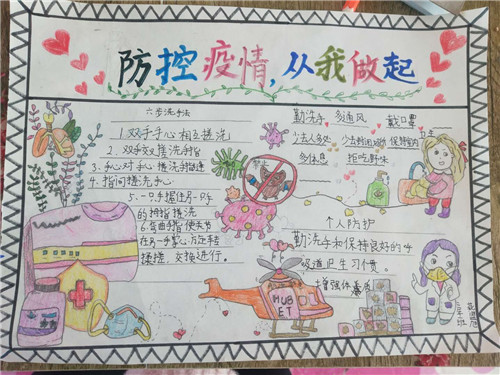 防控疫情,从我做起
六步洗手法
1.双手手心相互搓洗
2.双手交叉搓洗手指
3.手心对手心搓洗手指缝
4.指间搓洗手心
5.一只手握住另一只手
的拇指搓洗
6.弯曲手指使关节
在另一手掌心旋转
揉搓,交换进行。
勤洗手 多通风 戴口罩
少去人多处
多休息
个人防护
勤洗手和保持良好的呼
吸道卫生习惯。
增强体
HUB
ET